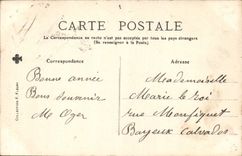 CARTE POSTALE
La Correspondance au recto n'est pas acceptée par tous les pays étrangers
(Se renseigner à la Poste).
CORRESPONDANCE
ADRESSE
Bonne année
Bons souvenir
Me Oger
Mademoiselle
Marie le
rue Montfiquet
Bayeux Calvados